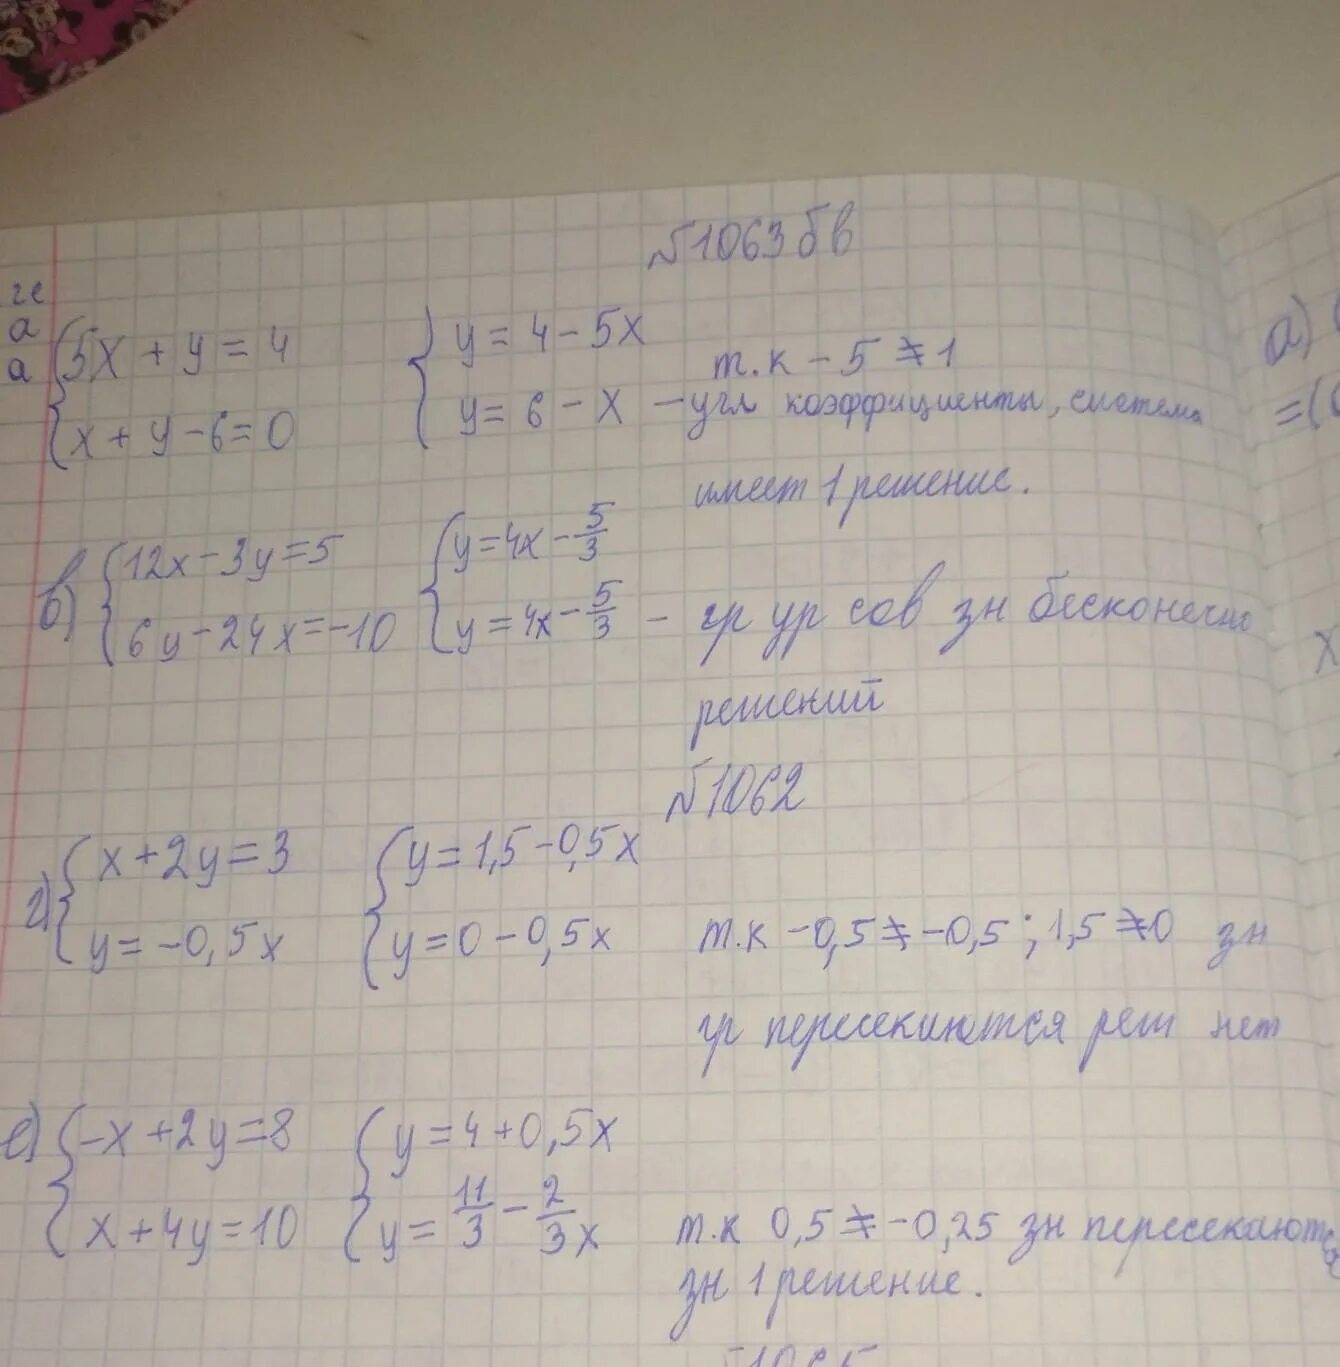 №1063 б в
ге
а
а
5x + y = 4
y = 4 - 5x
т.к - 5 ≠ 1
x + y - 6 = 0
y = 6 - x - угл коэффициенты, система
имеет 1 решение.
в) 12x - 3y = 5
y = 4x - 5/3
6y - 24x = -10
y = 4x - 5/3 - гр ур сов зн бесконечно
решений
№1062
г) x + 2y = 3
y = 1,5 - 0,5x
y = -0,5x
y = 0 - 0,5x
т.к -0,5 ≠ -0,5 ; 1,5 ≠ 0 зн
гр пересекиются реш нет
е) -x + 2y = 8
y = 4 + 0,5x
x + 4y = 10
y = 11/3 - 2/3 x
т.к 0,5 ≠ -0,25 зн пересекаются
зн 1 решение.
а)
=(
x